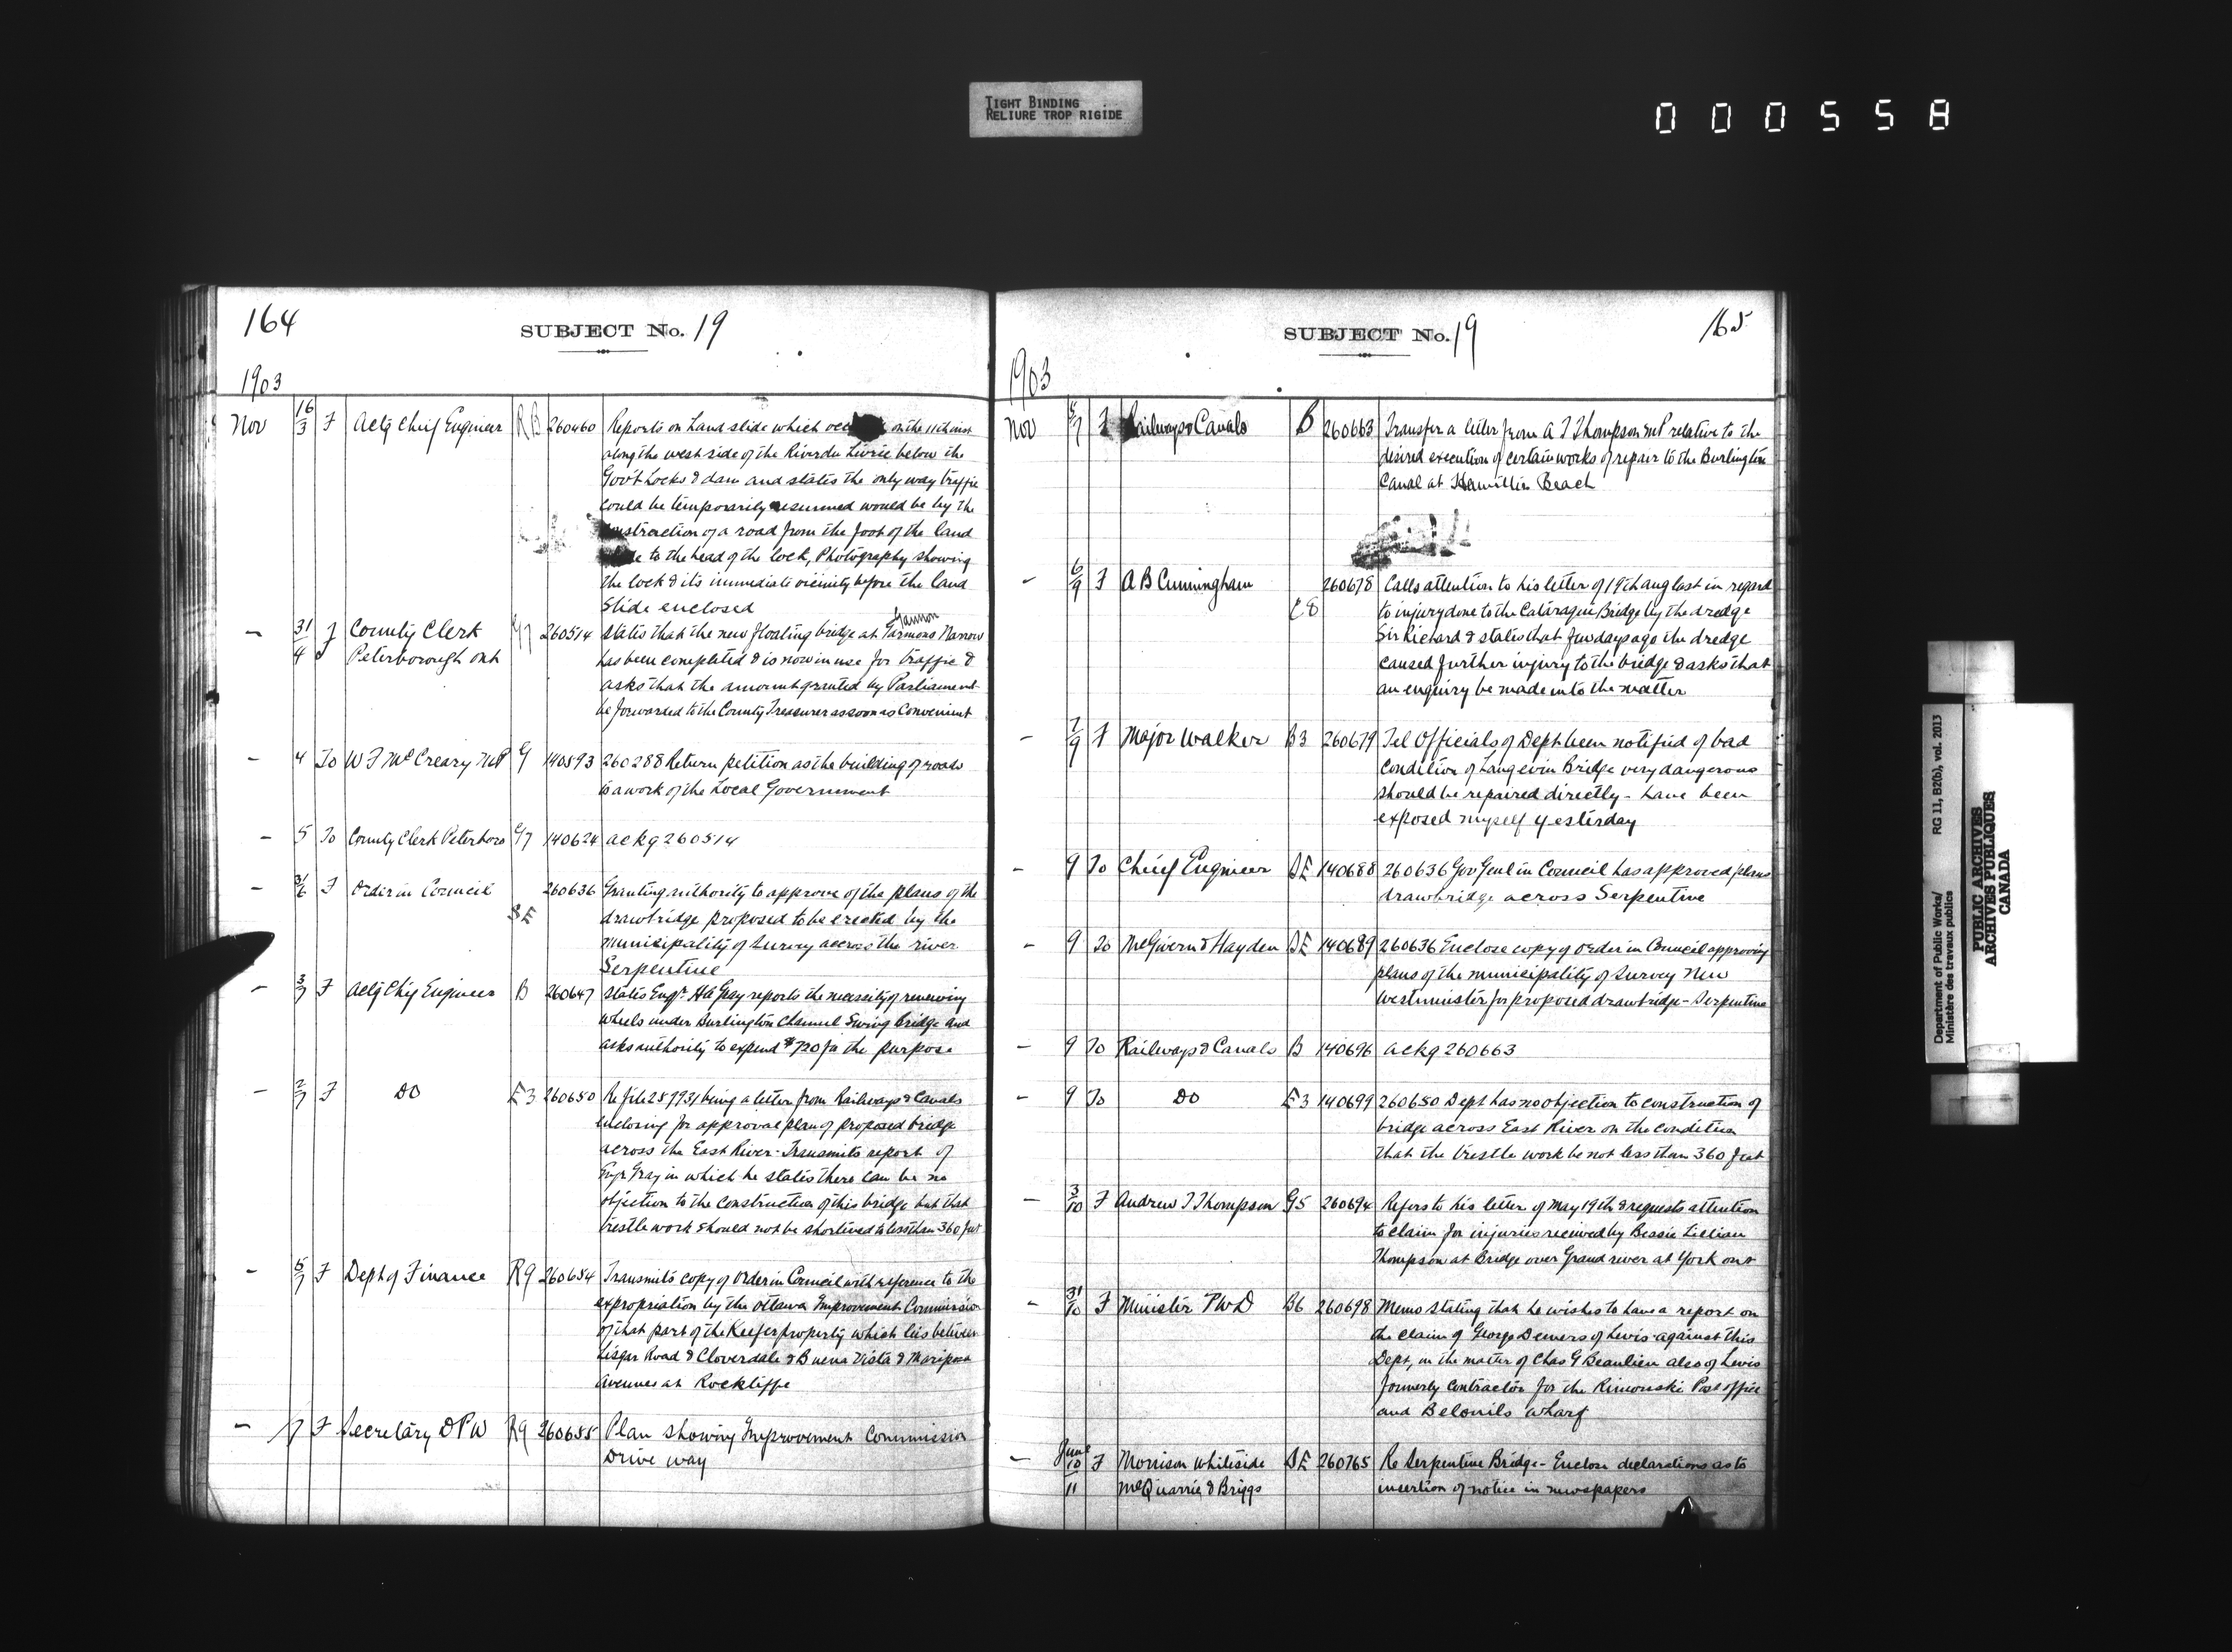 TIGHT BINDING
RELIURE TROP RIGIDE
000558
164
SUBJECT No. 19
1903
Nov 16/3 F Actg Chief Engineer RB 260460 Reports on Land slide which on the 11th inst
along the west side of the Riviere du Lievre below the
Gov't Locks & dam and states the only way traffic
could be temporarily resumed would be by the
construction of a road from the foot of the land
slide to the head of the lock, Photography showing
the lock & its immediate vicinity before the land
Slide enclosed
Gannon
— 31/4 F County Clerk G7 260514 states that the new floating bridge at Garmons Narrow
Peterborough Ont has been completed & is now in use for traffic &
asks that the amount granted by Parliament
be forwarded to the County Treasurer as soon as Convenient
— 4 To W F McCreary MP G 140593 260288 Return petition as the building of roads
is a work of the Local Government
— 5 To County Clerk Peterboro G7 140624 ackg 260514
— 31/6 F Order in Council 260636 Granting authority to approve of the plans of the
SE drawbridge proposed to be erected by the
municipality of Surrey across the river
Serpentine
— 3/7 F Actg Chief Engineer B 260647 states Engr. H A Gray reports the necessity of renewing
wheels under Burlington Channel Swing Bridge and
asks authority to expend $720 for the purpose
— 2/7 F DO E3 260650 Re file 257931 being a letter from Railways & Canals
enclosing for approval plan of proposed bridge
across the East River - Transmits report of
Engr Gray in which he states there can be no
objection to the construction of this bridge but that
trestle work should not be shortened to less than 360 feet
— 5/7 F Dept of Finance R9 260654 Transmits copy of Order in Council with reference to the
expropriation by the Ottawa Improvement Commission
of that part of the Keefer property which lies between
Lisgar Road & Cloverdale & Buena Vista & Mariposa
Avenues at Rockliffe
— /7 F Secretary DPW R9 260655 Plan showing Improvement Commission
Drive way
SUBJECT No. 19
165
1903
Nov /7 F Railways & Canals B 260663 Transfer a letter from A T Thompson MP relative to the
desired execution of certain works of repair to the Burlington
Canal at Hamilton Beach
— 6/9 F A B Cunningham 260678 Calls attention to his letter of 19th Aug last in regard
C8 to injury done to the Cataraqui Bridge by the dredge
Sir Richard & states that few days ago the dredge
caused further injury to the bridge & asks that
an enquiry be made into the matter
— 7/9 F Major Walker B3 260679 Tel Officials of Dept been notified of bad
condition of Langevin Bridge very dangerous
should be repaired directly - have been
exposed myself yesterday
— 9 To Chief Engineer SE 140688 260636 Gov Genl in Council has approved plans
drawbridge across Serpentine
— 9 To McGivern & Hayden SE 140689 260636 Enclose copy of Order in Council approving
plans of the municipality of Surrey New
Westminster for proposed drawbridge - Serpentine
— 9 To Railways & Canals B 140696 ackg 260663
— 9 To DO E3 140699 260650 Dept has no objection to construction of
bridge across East River on the condition
that the trestle work be not less than 360 feet
— 3/10 F Andrew T Thompson G5 260694 Refers to his letter of May 19th & requests attention
to claim for injuries received by Bessie Lillian
Thompson at Bridge over Grand river at York Ont
— 31/10 F Minister PWD B6 260698 Memo stating that he wishes to have a report on
the claim of George Demers of Levis against this
Dept, in the matter of Chas G Beaulieu also of Levis
formerly Contractor for the Rimouski Post office
and wharf
— June 10/11 F Morrison Whiteside SE 260765 Re Serpentine Bridge - Enclose declarations as to
McQuarrie & Briggs insertion of notice in newspapers
Department of Public Works/ RG 11, B2(b), vol. 2013
Ministère des travaux publics
PUBLIC ARCHIVES
ARCHIVES PUBLIQUES
CANADA